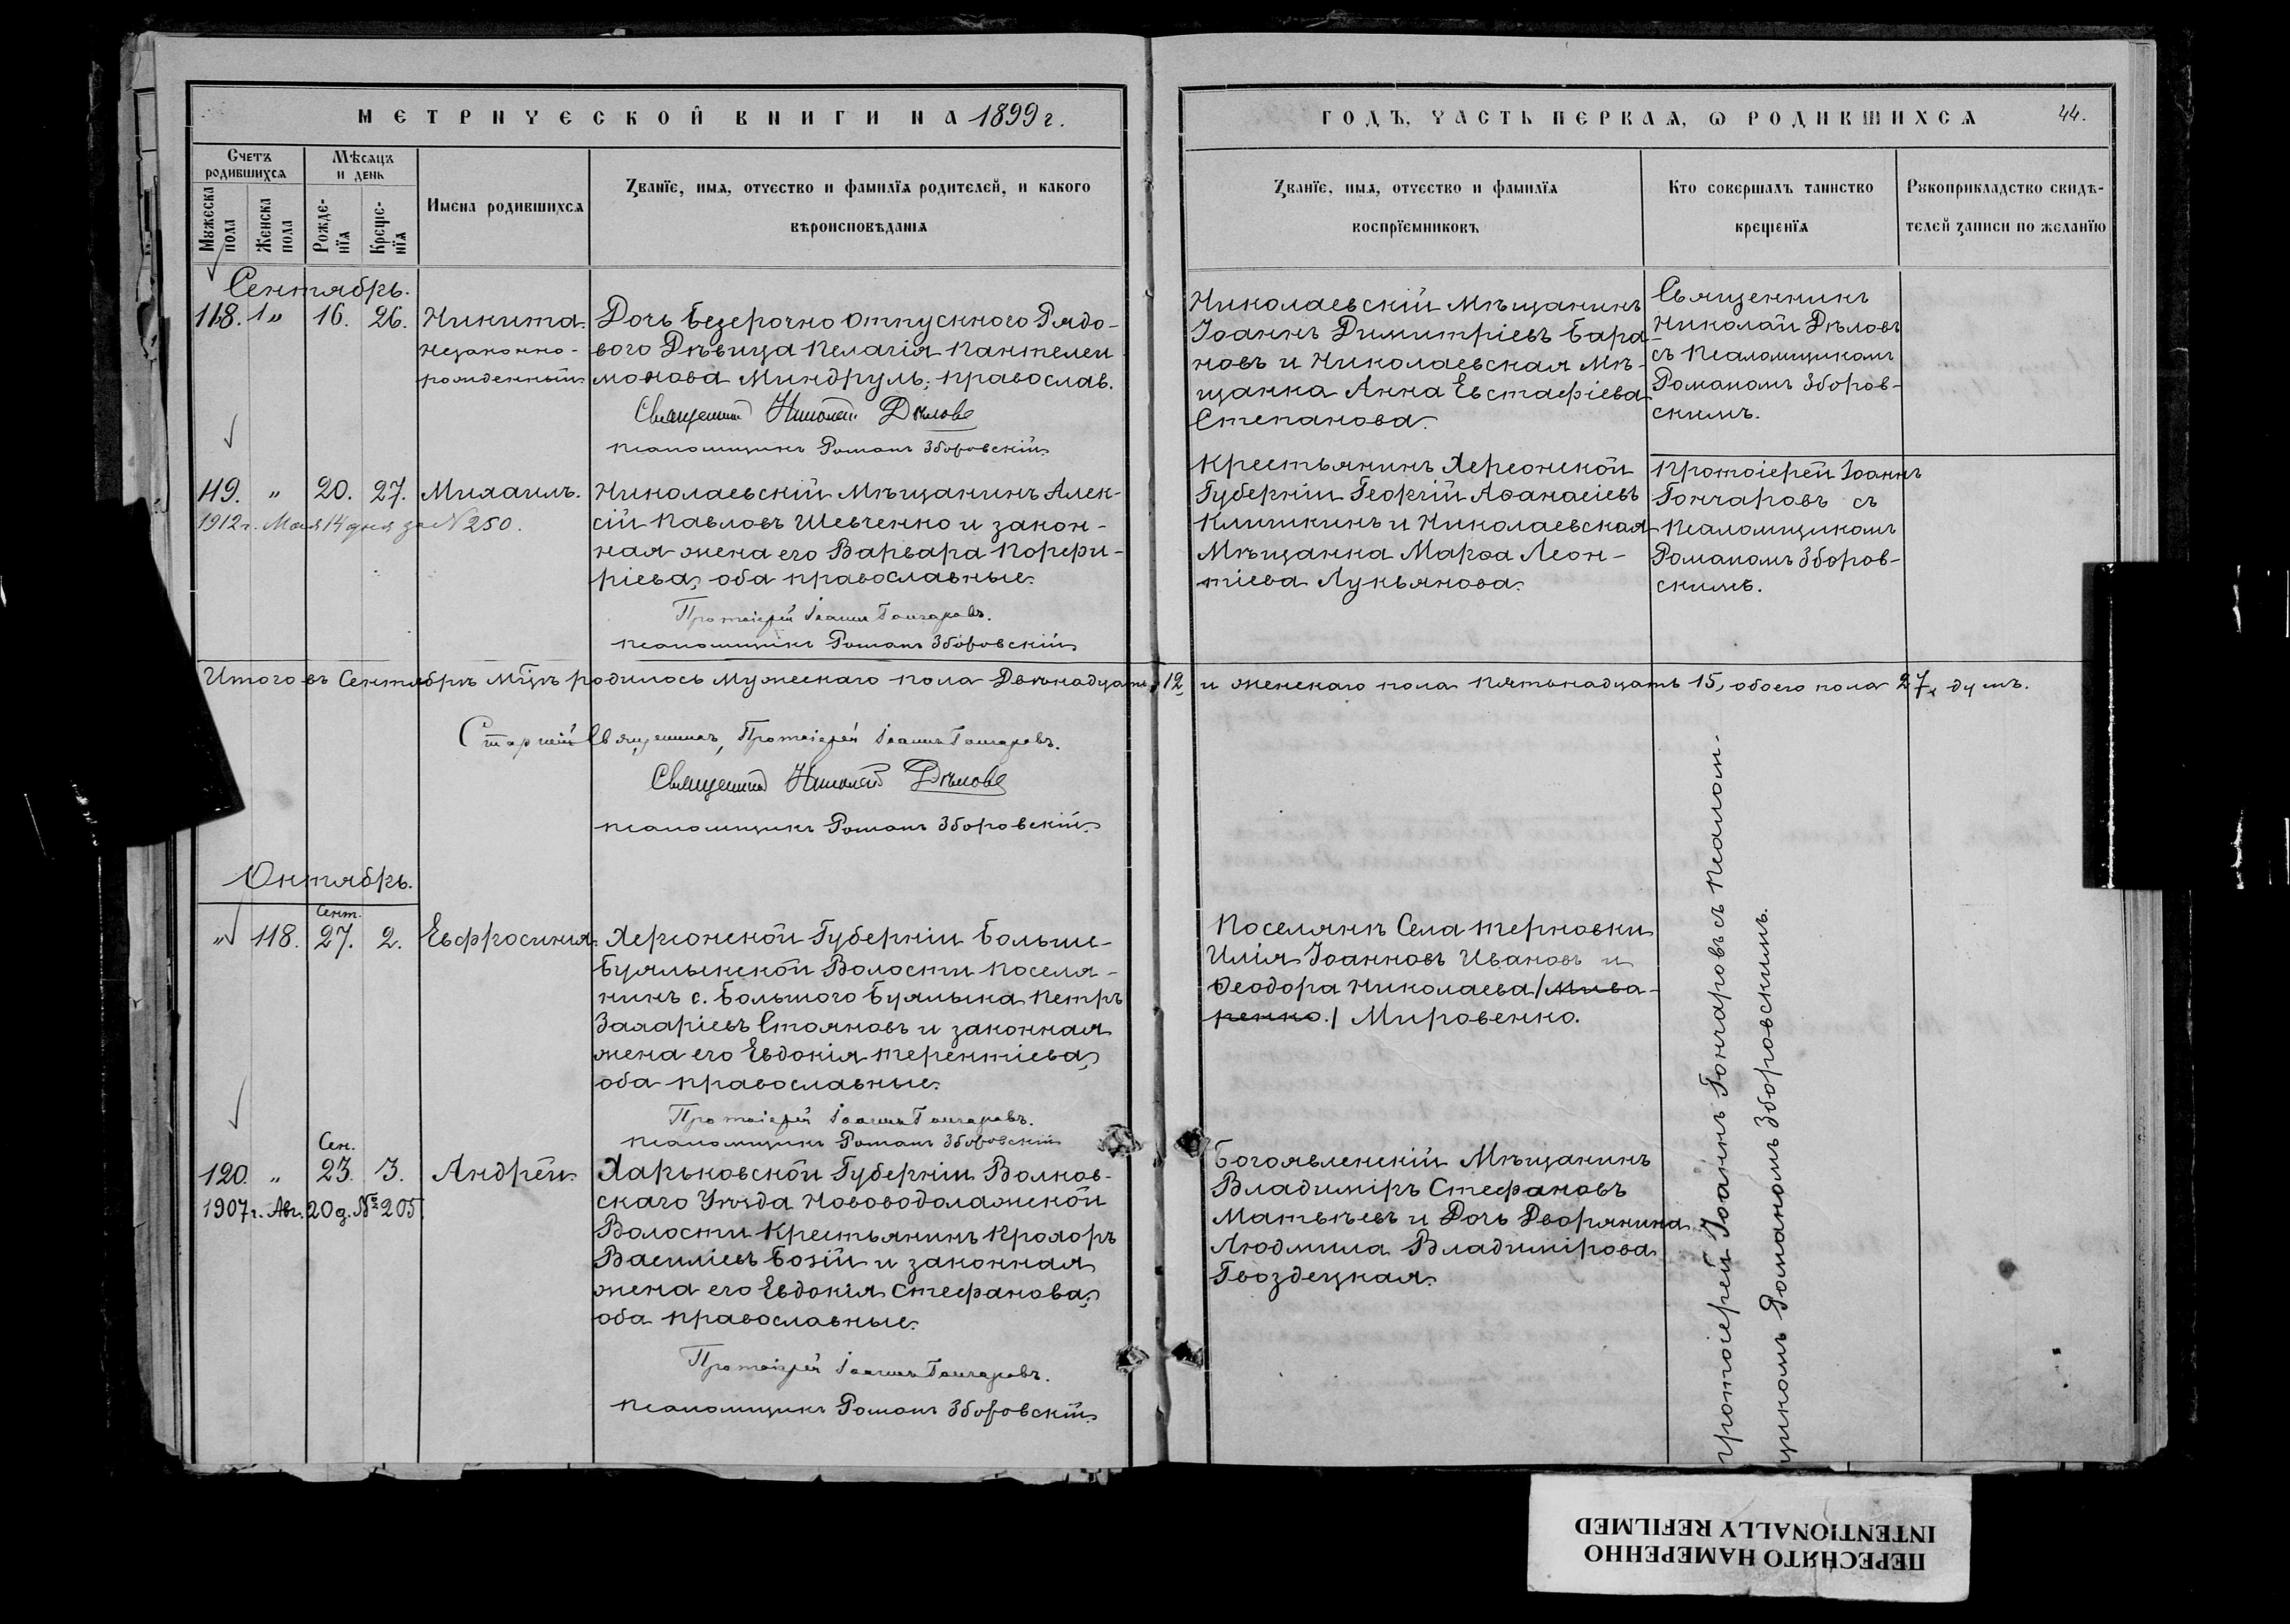 МЕТРИЧЕСКОЙ КНИГИ НА 1899 г.
Счетъ родившихся
Мѣсяцъ и день
Мужеска пола
Женска пола
Рожденїя
Крещенїя
Имена родившихся
Званїе, имя, отчество и фамилїя родителей, и какого
вѣроисповѣданія
Сентябрь.
118. 1 „ 16. 26. Никита. Дочь безсрочно отпускного Рядо-
незаконно- вого Дѣвица Пелагія Пантелеи
рожденный монова Миндруль, православ.
Священникъ Николай Дѣловъ
Псаломщикъ Романъ Зборовскій
119. „ 20. 27. Михаилъ. Николаевскій Мѣщанинъ Алек-
1912 г. Мая 14 дня за № 250. сій Павловъ Шевченко и закон-
ная жена его Варвара Порфи-
ріева, оба православные.
Протоіерей Іоаннъ Гончаровъ.
Псаломщикъ Романъ Зборовскій
Итого въ Сентябрѣ мѣцѣ родилось мужескаго пола Двѣнадцать, 12,
Старшій Священникъ, Протоіерей Іоаннъ Гончаровъ.
Священникъ Николай Дѣловъ
Псаломщикъ Романъ Зборовскій
Октябрь.
Сент.
„ 118. 27. 2. Евфросинія. Херсонской Губерніи Больше-
Буялыкской Волости поселя-
нинъ с. Большого Буялыка Петръ
Захаріевъ Стояновъ и законная
жена его Евдокія Терентіева,
оба православные.
Протоіерей Іоаннъ Гончаровъ.
Псаломщикъ Романъ Зборовскій
Сен.
120. „ 23. 3. Андрей. Харьковской Губерніи Волков-
1907 г. Авг. 20 д. № 205. скаго Уѣзда Нововодолажской
Волости Крестьянинъ Прохоръ
Василіевъ Бозій и законная
жена его Евдокія Стефанова,
оба православные.
Протоіерей Іоаннъ Гончаровъ.
Псаломщикъ Романъ Зборовскій
ГОДЪ, ЧАСТЬ ПЕРВАЯ, Ѡ РОДИВШИХСЯ 44.
Званїе, имя, отчество и фамилїя
воспрїемниковъ
Кто совершалъ таинство
крещенїя
Рукоприкладство свидѣ-
телей записи по желанїю
Николаевскій Мѣщанинъ
Іоаннъ Димитріевъ Бара-
новъ и Николаевская Мѣ-
щанка Анна Евстафіева
Степанова.
Священникъ
Николай Дѣловъ
съ Псаломщикомъ
Романомъ Зборов-
скимъ.
Крестьянинъ Херсонской
Губерніи Георгій Аѳанасіевъ
Климкинъ и Николаевская
Мѣщанка Марѳа Леон-
тіева Лукьянова.
Протоіерей Іоаннъ
Гончаровъ съ
Псаломщикомъ
Романомъ Зборов-
скимъ.
и женскаго пола Пятьнадцать 15, обоего пола 27, душъ.
Поселяне Села Терновки
Илія Іоанновъ Ивановъ и
Ѳеодора Николаева /Мива-
ренко./ Мировенко.
Богоявленскій Мѣщанинъ
Владиміръ Стефановъ
Матвѣевъ и Дочь Дворянина
Людмила Владимірова
Гвоздецкая.
Протоіерей Іоаннъ Гончаровъ съ Псалом-
щикомъ Романомъ Зборовскимъ.
ПЕРЕСНЯТО НАМЕРЕННО
INTENTIONALLY REFILMED